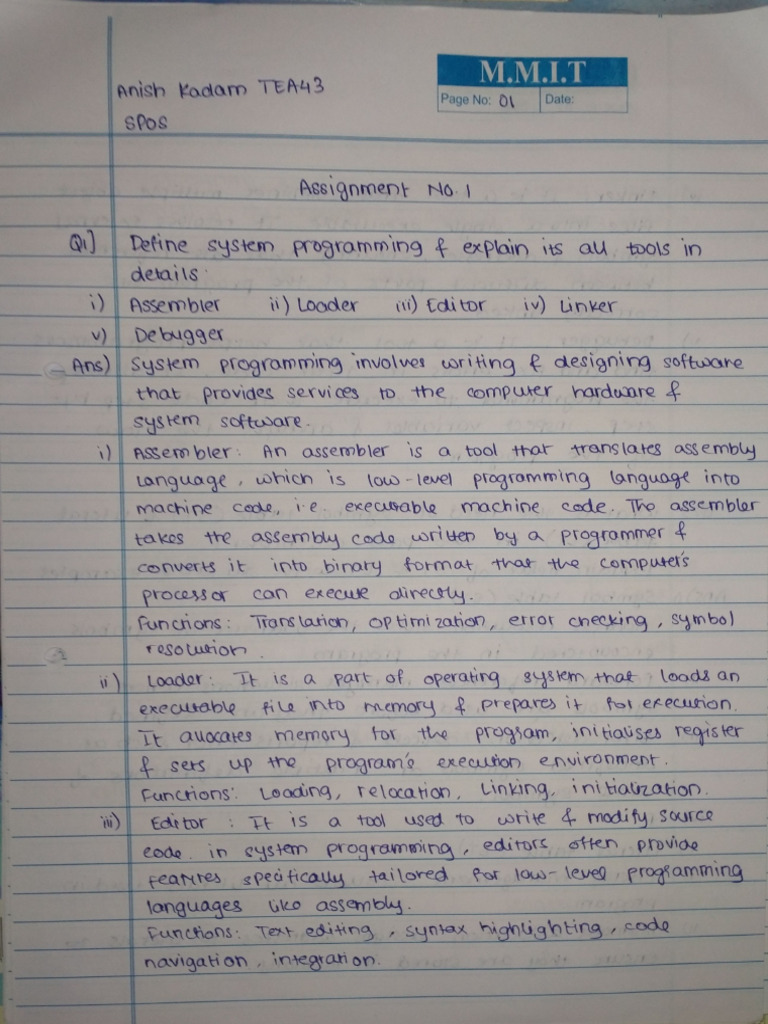 M.M.I.T
Page No: 01 Date:
Anish Kadam TEA43
SPOS
Assignment No. 1
Q1] Define system programming & explain its all tools in
details
i) Assembler ii) Loader iii) Editor iv) Linker
v) Debugger
Ans) System programming involves writing & designing software
that provides services to the computer hardware &
system software.
i) Assembler: An assembler is a tool that translates assembly
language, which is low-level programming language into
machine code, i.e. executable machine code. The assembler
takes the assembly code written by a programmer &
converts it into binary format that the computer's
processor can execute directly.
Functions: Translation, optimization, error checking, symbol
resolution.
ii) Loader: It is a part of operating system that loads an
executable file into memory & prepares it for execution.
It allocates memory for the program, initialises register
& sets up the program's execution environment.
Functions: Loading, relocation, Linking, initialization.
iii) Editor : It is a tool used to write & modify source
code. in system programming, editors often provide
features specifically tailored for low-level programming
languages like assembly.
Functions: Text editing, syntax highlighting, code
navigation, integration.